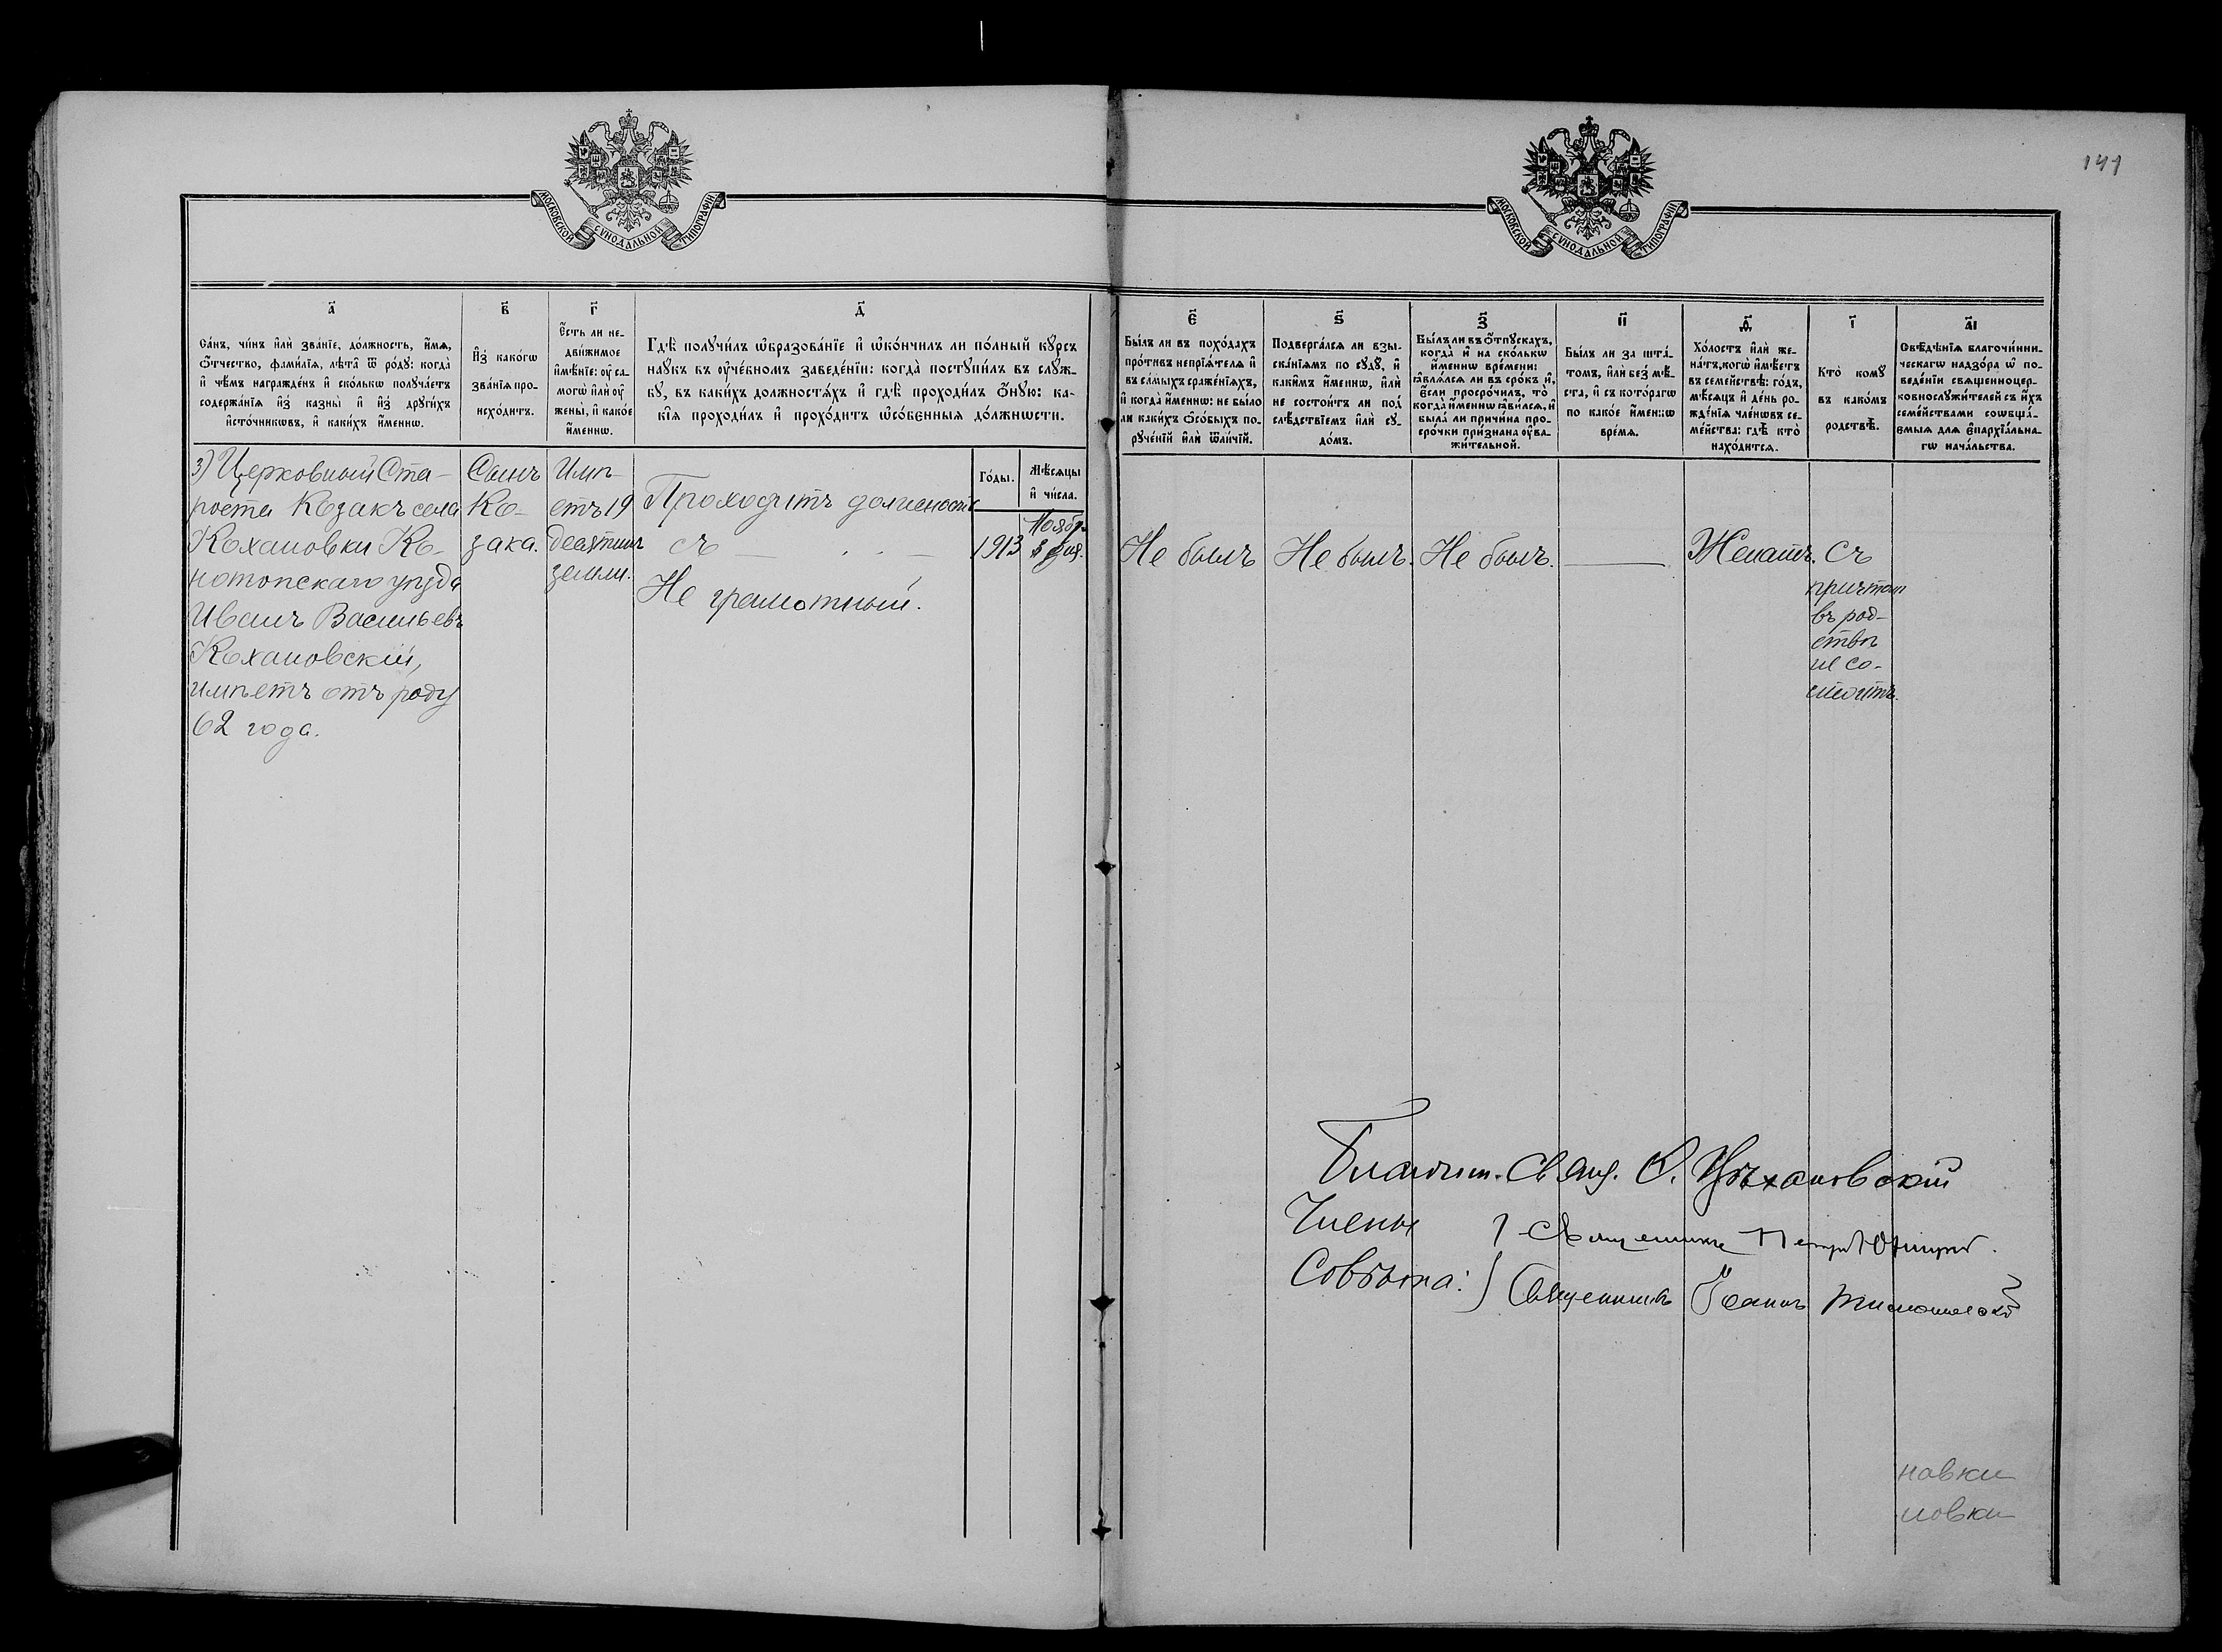 141
МОСКОВСКОЙ СУНОДАЛЬНОЙ ТИПОГРАФІИ
МОСКОВСКОЙ СУНОДАЛЬНОЙ ТИПОГРАФІИ
а҃
Са́нъ, чи́нъ и҆лѝ зва́нїе, до́лжность, и҆́мѧ,
ѻ҆́тчество, фами́лїѧ, лѣ́та ѿ ро́дꙋ: когда̀
и҆ чѣ́мъ награжде́нъ и҆ ско́лькѡ получа́етъ
содержа́нїѧ и҆з̾ казны̀ и҆ и҆з̾ други́хъ
и҆сто́чникѡвъ, и҆ каки́хъ и҆́меннѡ.
в҃
И҆з̾ како́гѡ
зва́нїѧ про-
исхо́дитъ.
г҃
Є҆́сть ли не-
дви́жимое
и҆мѣ́нїе: ᲂу҆ са-
могѡ̀ и҆лѝ ᲂу҆
жены̀, и҆ како́е
и҆́меннѡ.
д҃
Гдѣ̀ получи́лъ ѡ҆бразова́нїе и҆ ѡ҆ко́нчилъ ли по́лный кꙋ́рсъ
наꙋ́къ въ ᲂу҆че́бномъ заведе́нїи: когда̀ постꙋпи́лъ въ слꙋ́ж-
бꙋ, въ каки́хъ должностѧ́хъ и҆ гдѣ̀ проходи́лъ ѻ҆́нꙋю: ка-
кі̑ѧ проходи́лъ и҆ прохо́дитъ ѡ҆со́бєнныѧ до́лжнѡсти.
Го́ды.
Мѣ́сѧцы
и҆ чи́сла.
є҃
Бы́лъ ли въ похо́дахъ
про́тивъ непрїѧ́телѧ и҆
въ са́мыхъ сраже́нїѧхъ,
и҆ когда̀ и҆́меннѡ: не бы́ло
ли каки́хъ ѻ҆со́быхъ по-
рꙋче́нїй и҆лѝ ѿли́чїй.
ѕ҃
Подверга́лсѧ ли взы-
ска́нїѧмъ по сꙋдꙋ̀, и҆
каки̑мъ и҆́меннѡ, и҆лѝ
не состои́тъ ли под̾
слѣ́дствїемъ и҆лѝ сꙋ-
до́мъ.
з҃
Бы́лъ ли въ ѻ҆́тпꙋскахъ,
когда̀ и҆ на ско́лькѡ
и҆́меннѡ вре́мени:
ꙗ҆влѧ́лсѧ ли въ сро́къ и҆,
є҆́сли просро́чилъ, то̀
когда̀ и҆́меннѡ ꙗ҆ви́лсѧ, и҆
была̀ ли причи́на про-
сро́чки при́знана ᲂу҆ва-
жи́тельной.
и҃
Бы́лъ ли за шта́-
томъ, и҆лѝ без̾ мѣ́-
ста, и҆ съ кото́рагѡ
по како́е и҆́меннѡ
вре́мѧ.
ѳ҃
Хо́лостъ и҆лѝ же-
на́тъ, когѡ̀ и҆мѣ́етъ
въ семе́йствѣ: го́дъ,
мѣ́сѧцъ и҆ де́нь ро-
жде́нїѧ чле́нѡвъ се-
ме́йства: гдѣ̀ кто̀
нахо́дитсѧ.
і҃
Кто̀ комꙋ̀
въ како́мъ
родствѣ̀.
а҃і
Свѣ́дѣнїѧ благочи́нни-
ческагѡ надзо́ра ѡ҆ по-
веде́нїи свѧщенноцер-
ковнослꙋжи́телей съ и҆́хъ
семе́йствами соѡбща́-
ємыѧ длѧ є҆парх́їальна-
гѡ нача́льства.
3) Церковный Ста-
роста Козакъ села
Кохановки Ко-
нотопскаго уѣзда
Иванъ Васильевъ
Кохановскій,
имѣетъ отъ роду
62 года.
Сынъ
Ко-
зака.
Имѣ-
етъ 19
десятинъ
земли.
Проходитъ должность
съ —
Не грамотный.
1913
Ноябр.
Не былъ
Не былъ.
Не былъ.
Женатъ.
Съ
причтомъ
въ род-
ствѣ
не со-
стоитъ.
Благочин. Свящ. К. Цѣхановскій
Члены
Совѣта:
Священникъ Петръ
Священникъ Іоаннъ
новки
новки